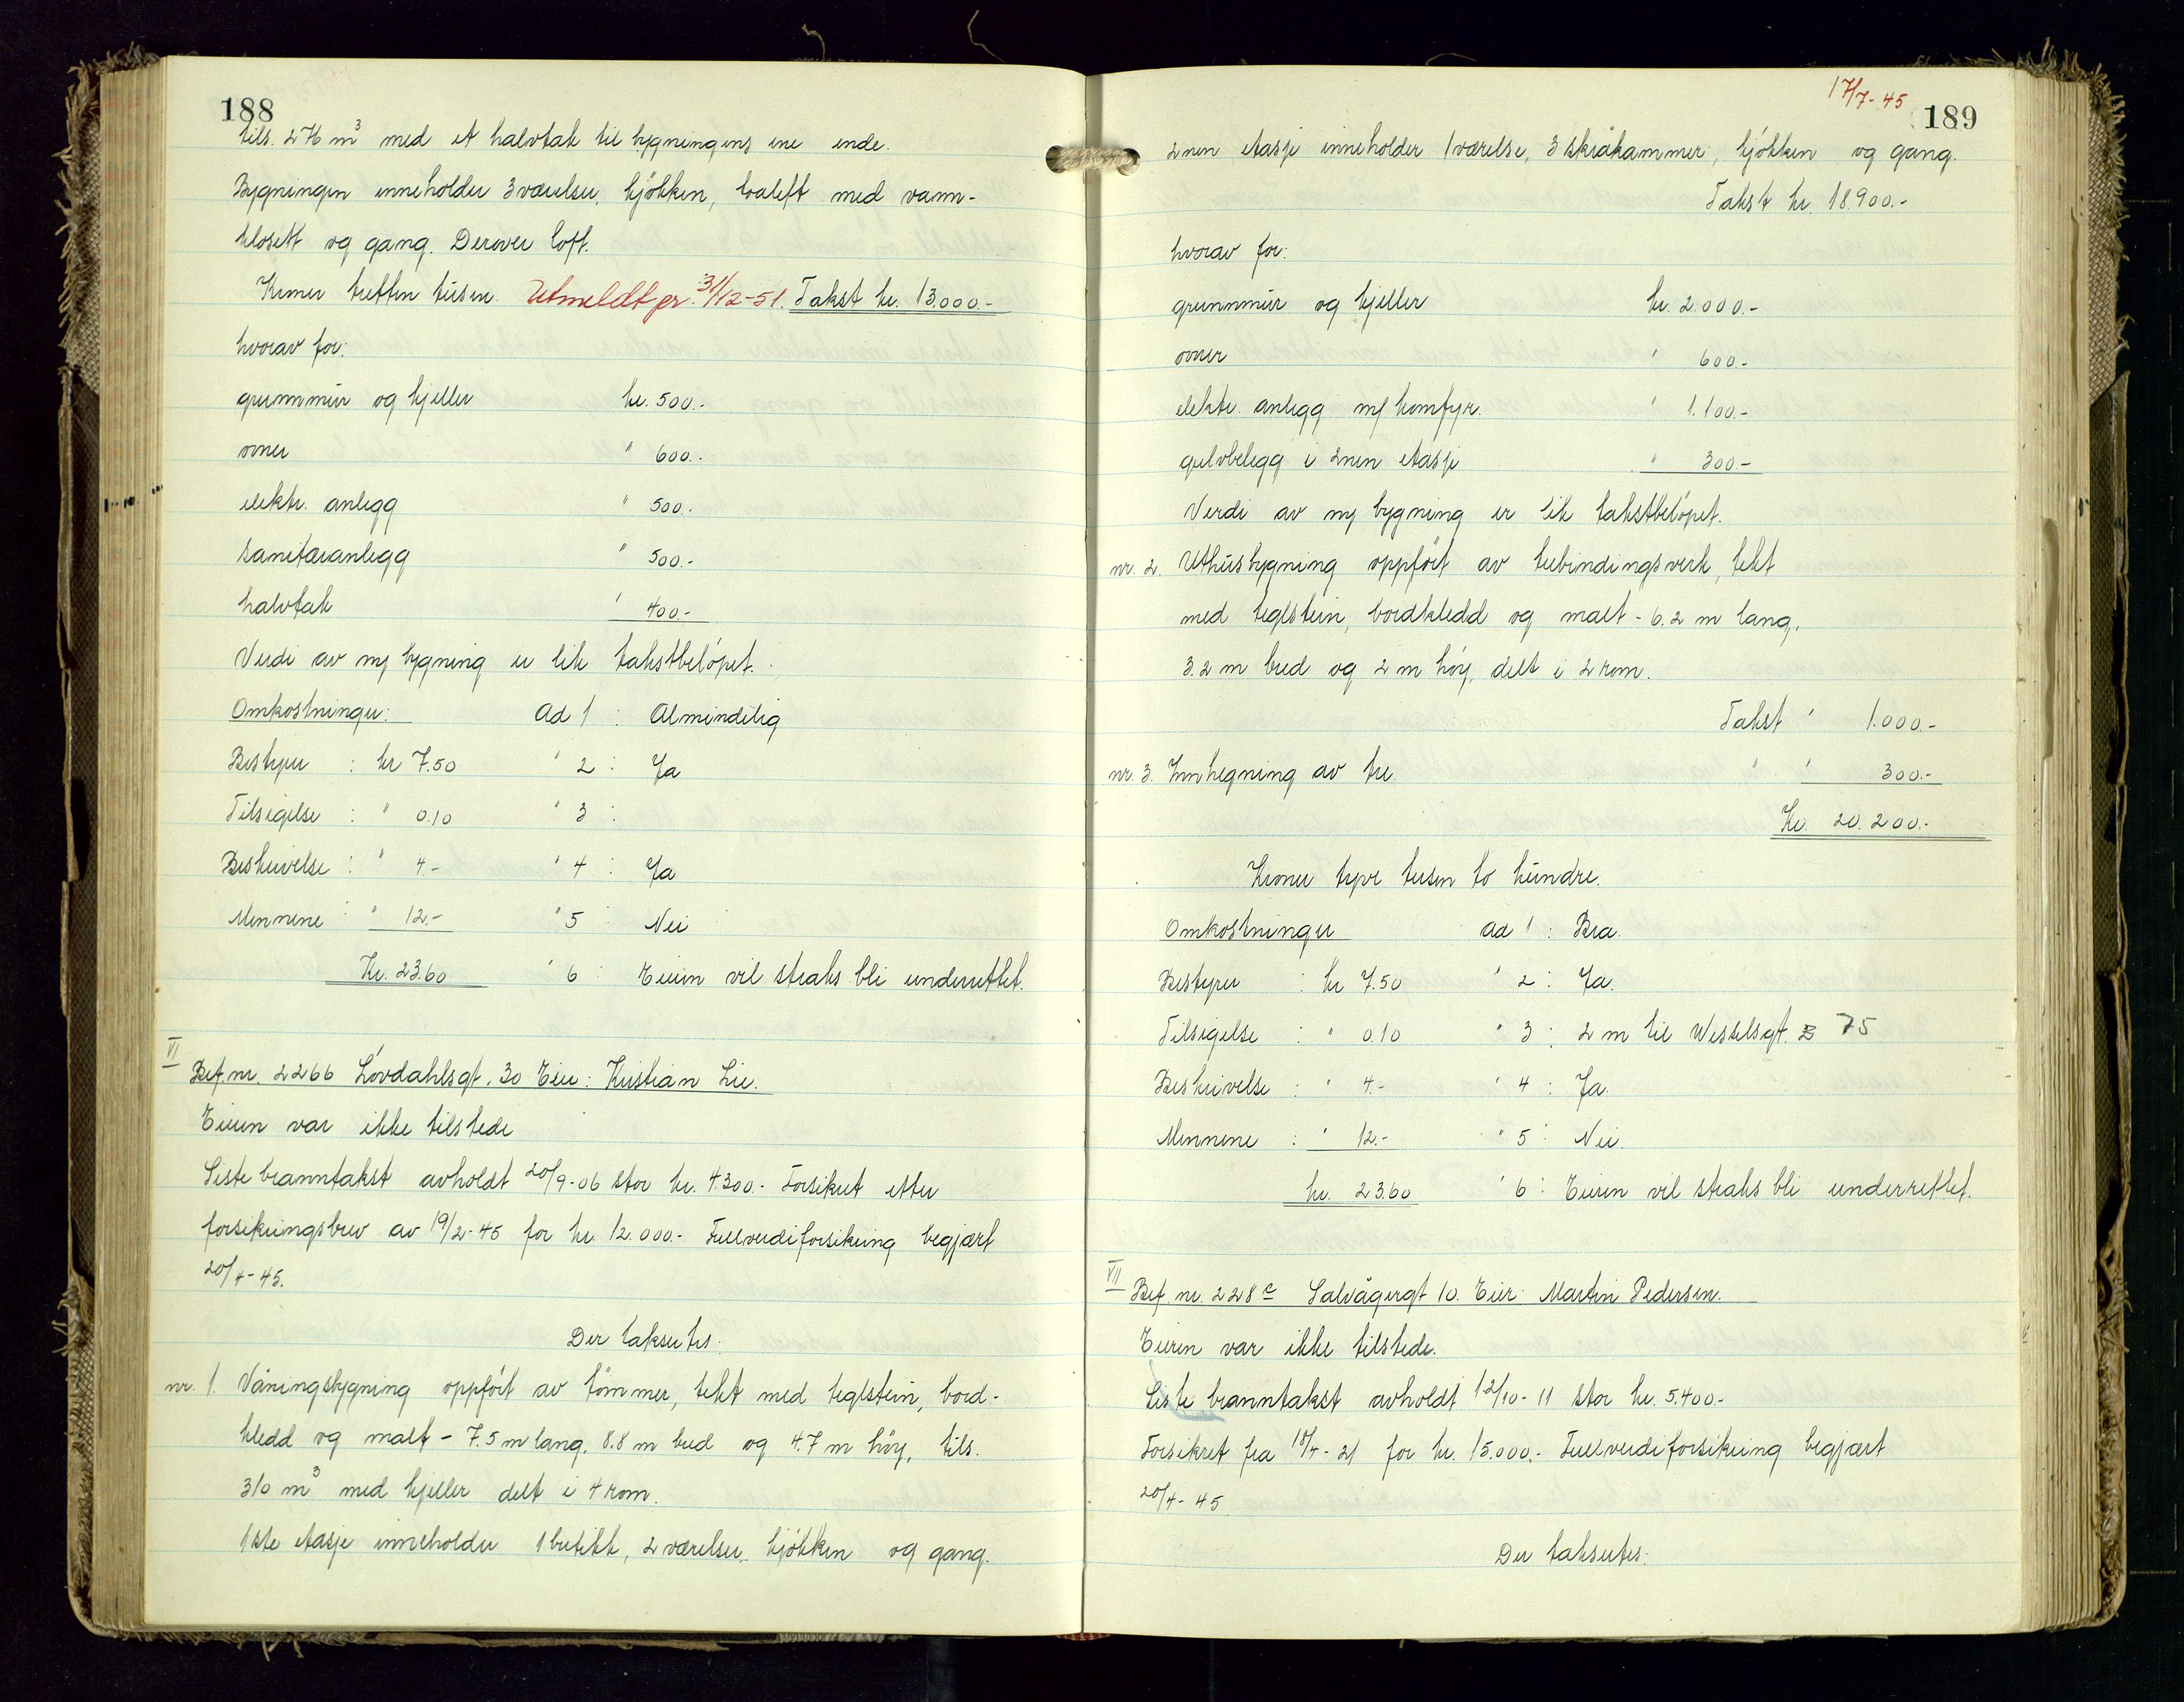 188
tils. 276 m³ med et halvtak til bygningens ene ende.
Bygningen inneholder 3 værelser, kjökken, toalett med vann-
klosett og gang. Derover loft.
Kroner tretten tusen. Utmeldt pr. 31/12-51. Takst kr. 13.000.-
hvorav for:
grunnmur og kjeller kr. 500.-
ovner " 600.-
elektr. anlegg " 500.-
sanitæranlegg " 500.-
halvtak " 400.-
Verdi av ny bygning er lik takstbelöpet.
Omkostninger: Ad 1 : Almindelig
Bestyrer : kr 7.50 " 2 : Ja
Tilsigelse : " 0.10 " 3 :
Beskrivelse : " 4.- " 4 : Ja
Mennene : " 12.- " 5 : Nei
Kr. 23.60 " 6 : Eieren vil straks bli underrettet.
VI
Bef. nr. 2266 Lövdahlsgt. 30 Eier: Kristian Lie.
Eieren var ikke tilstede
Siste branntakst avholdt 20/9-06 stor kr. 4.300.- Forsikret etter
forsikringsbrev av 19/2-45 for kr. 12.000.- Fullverdiforsikring begjært
20/4-45.
Der takseres:
nr. 1. Våningsbygning oppfört av tömmer, tekt med teglstein, bord-
kledd og malt - 7.5 m lang, 8.8 m bred og 4.7 m höy, tils.
310 m³ med kjeller delt i 4 rom.
1ste etasje inneholder 1 butikk, 2 værelser, kjökken og gang.
17/7-45
189
2nen etasje inneholder 1 værelse, 3 skråkammer, kjökken og gang.
Takst kr. 18.900.-
hvorav for:
grunnmur og kjeller kr. 2.000.-
ovner " 600.-
elektr. anlegg m/ komfyr. " 1.100.-
gulvbelegg i 2nen etasje " 300.-
Verdi av ny bygning er lik takstbelöpet.
nr. 2. Uthusbygning oppfört av trebindingsverk, tekt
med teglstein, bordkledd og malt - 6.2 m lang,
3.2 m bred og 2 m höy, delt i 2 rom.
Takst " 1.000.-
nr. 3. Innhegning av tre. " " 300.-
Kr. 20.200.-
Kroner tyve tusen to hundre.
Omkostninger ad 1 : Bra.
Bestyrer : kr 7.50 " 2 : Ja.
Tilsigelse : " 0.10 " 3 : 2 m til Wesselsgt. 75
Beskrivelse : " 4.- " 4 : Ja.
Mennene : " 12.- " 5 : Nei.
kr. 23.60 " 6 : Eieren vil straks bli underrettet.
VII
Bef. nr. 228c Salvågergt 10. Eier: Martin Pedersen.
Eieren var ikke tilstede.
Siste branntakst avholdt 12/10-11 stor kr. 5.400.-
Forsikret fra 18/4-21 for kr. 15.000.- Fullverdiforsikring begjært
20/4-45
Der takseres: